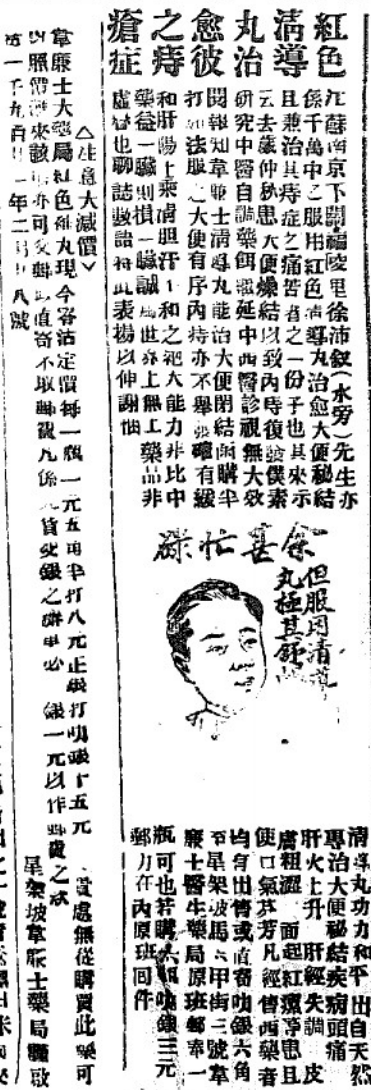 紅色
清導
丸治
愈彼
之痔
瘡症
江蘇南京下關福陵里徐沛叙(水旁)先生亦
係千萬中之服用紅色清導丸治愈大便秘結
且兼治其痔症之痛苦者之一份子也其來示
云去歲仲秋患大便燥結以致內痔復發僕素
研究中醫自調藥餌繼延中西醫診視無大效
閱報知韋廉士清導丸能治大便閉結函購半
打如法服之大便有序內痔亦不舉發確有緩
和肝陽上乘清胆汁下和之絕大能力非比中
藥益一臟則損一臟誠為世界上無上藥品非
虛譽也聊誌數語特此表揚以伸謝悃
余甚忙碌
但服用清導
丸極其舒
清導丸功力和平出自天然
專治大便秘結疾病頭痛
肝火上升 肝經失調 皮
膚粗澀 面起紅瘰等患且
使口氣芬芳凡經售西藥者
均有出售或直寄叻銀六角
至星架坡馬六甲街三號韋
廉士醫生藥局原班郵奉一
瓶可也若購六瓶叻銀三元
郵力在內原班回件
△生意大減價▽
韋廉士大藥局紅色補丸現今零沽定價每一瓶一元五角半打八元正每打叻銀十五元
照價 來 亦可 郵 直寄不取郵費凡係 貨 銀之 單必 銀一元以作郵費之
一千九百 一年二月 八號
處無從購買此藥可
星架坡韋廉士藥局謹啟